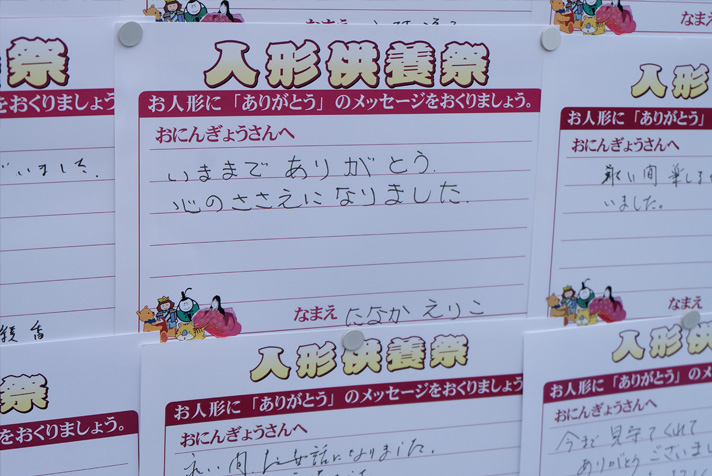 なまえ
なまえ
祭
をおくりましょう
いました.
人形供養祭
お人形に「ありがとう」のメッセージをおくりましょう。
おにんぎょうさんへ
いままで ありがとう.
心のささえになりました.
なまえ たなか えりこ
人形
お人形に「ありがとう」
おにんぎょうさんへ
いました。
なまえ
祭
をおくりましょう。
人形供養祭
お人形に「ありがとう」のメッセージをおくりましょう
おにんぎょうさんへ
長い間 お世話になりました.
人形供
お人形に「ありがとう」のメ
おにんぎょうさんへ
今まで 見守ってくれて
ありがとう ございまし